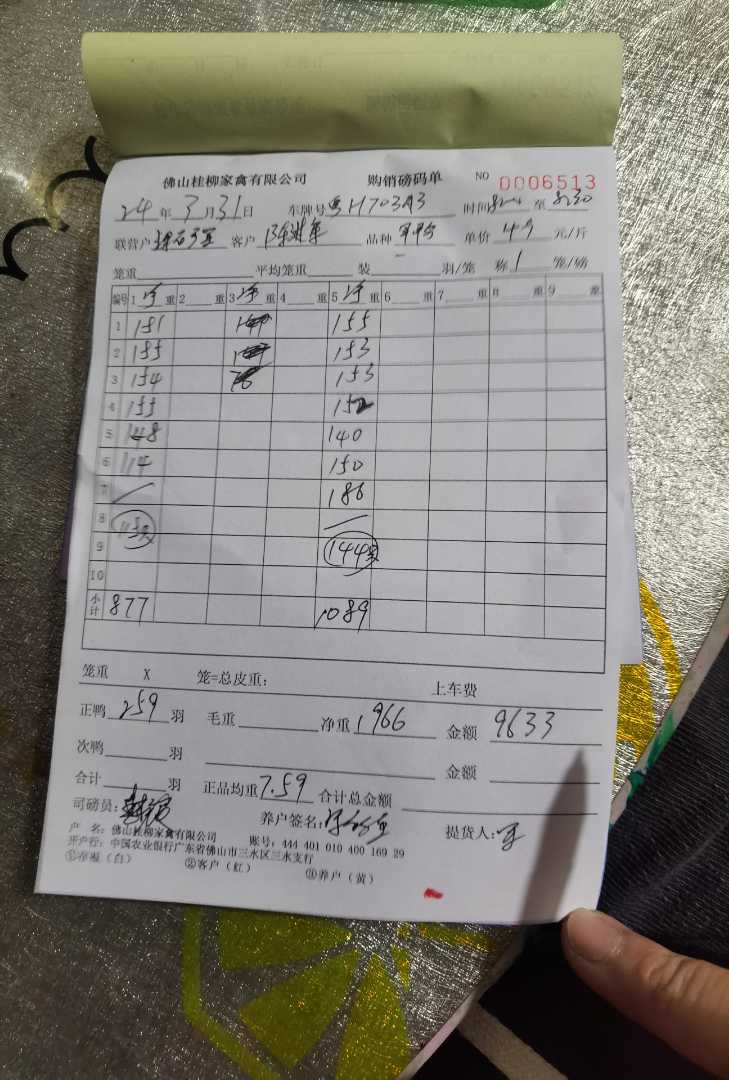 佛山桂柳家禽有限公司 购销磅码单 NO 0006513
24年3月31日 车牌号粤H703A3 时间 至
联营户 客户 品种 单价4.9元/斤
笼重 平均笼重 装 羽/笼 称1笼/磅
编号 1净重 2重 3净重 4重 5净重 6重 7重 8重 9重
1 151 155
2 155 153
3 154 153
4 155 152
5 148 140
6 114 150
7 186
8 115只
9 144只
10
小计 877 1089
笼重 X 笼=总皮重: 上车费
正鸭259羽 毛重 净重1966 金额9633
次鸭 羽 金额
合计 羽 正品均重7.59 合计总金额
司磅员: 养户签名: 提货人:
户 名: 佛山桂柳家禽有限公司 账号: 444 401 010 400 169 29
开户行: 中国农业银行广东省佛山市三水区三水支行
①存根(白) ②客户(红) ③养户(黄)